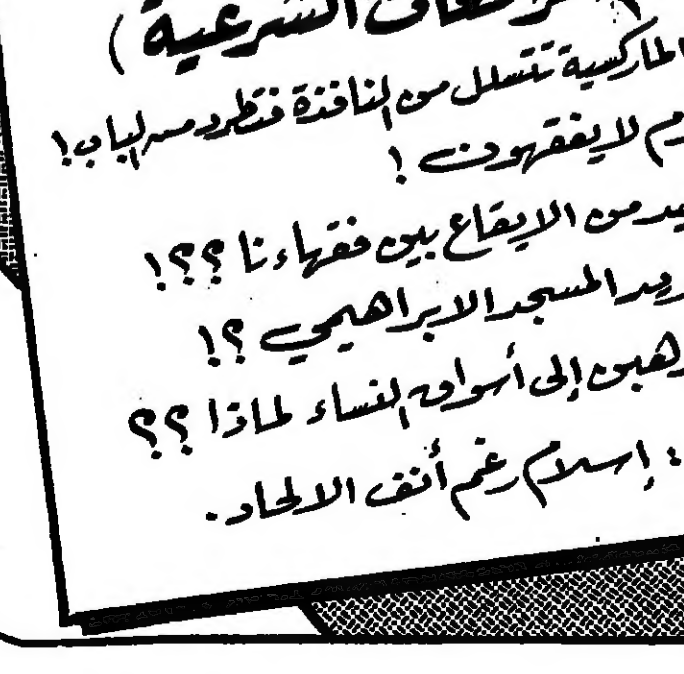 الشرعية )
الماركسية تتسلل من النافذة فتطرد من الباب !
لا يفقهون !
من الايقاع بين فقهاءنا ؟؟!
المسجد الابراهيمي ؟!
إلى أسواق النساء لماذا ؟؟
: إسلام رغم أنف الالحاد .